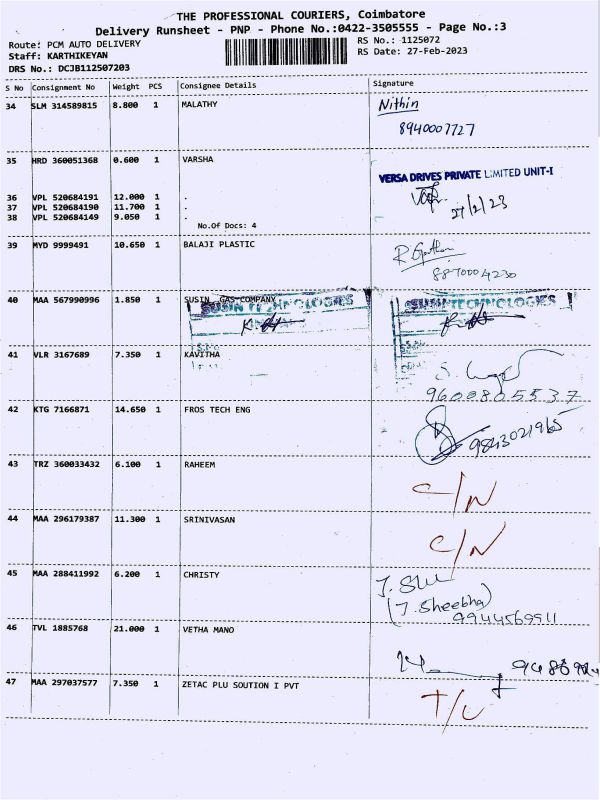 THE PROFESSIONAL COURIERS, Coimbatore
Delivery Runsheet - PNP - Phone No.:0422-3505555 - Page No.:3
Route: PCM AUTO DELIVERY
RS No.: 1125072
Staff: KARTHIKEYAN
RS Date: 27-Feb-2023
DRS No.: DCJB112507203
S No Consignment No Weight PCS Consignee Details Signature
34 SLM 314589815 8.800 1 MALATHY Nithin
8940007727
35 HRD 360051368 0.600 1 VARSHA
VERSA DRIVES PRIVATE LIMITED UNIT-I
36 VPL 520684191 12.000 1 .
37 VPL 520684190 11.700 1 .
27/2/23
38 VPL 520684149 9.050 1 .
No.Of Docs: 4
39 MYD 9999491 10.650 1 BALAJI PLASTIC
8870004230
40 MAA 567990996 1.850 1 SUSIN GAS COMPANY
SUSIN TECHNOLOGIES SUSIN TECHNOLOGIES
41 VLR 3167689 7.350 1 KAVITHA
9600805537
42 KTG 7166871 14.650 1 FROS TECH ENG
9843021965
43 TRZ 360033432 6.100 1 RAHEEM
C/N
44 MAA 296179387 11.300 1 SRINIVASAN
C/N
45 MAA 288411992 6.200 1 CHRISTY
(J. Sheebha)
9944569911
46 TVL 1885768 21.000 1 VETHA MANO
47 MAA 297037577 7.350 1 ZETAC PLU SOUTION I PVT
T/U